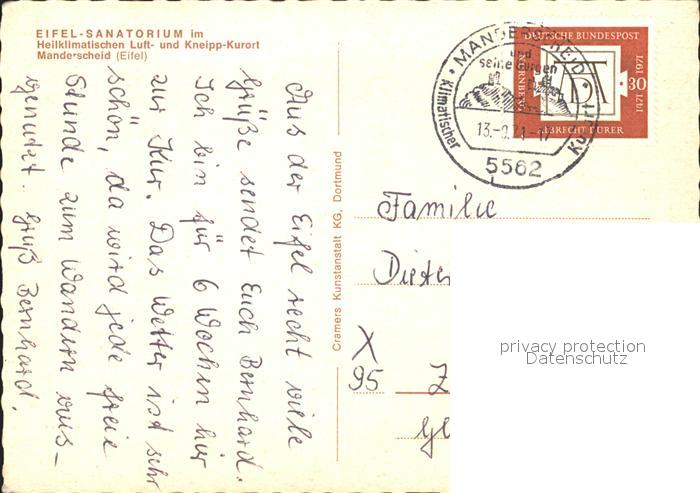 EIFEL-SANATORIUM im
Heilklimatischen Luft- und Kneipp-Kurort
Manderscheid (Eifel)
Aus der Eifel recht viele
Grüße sendet Euch Bernhard.
Ich bin für 6 Wochen hier
zur Kur. Das Wetter ist sehr
schön, da wird jede freie
Stunde zum Wandern aus-
genutzt. Gruß Bernhard.
Cramers Kunstanstalt KG, Dortmund
MANDERSCHEID
und
seine Burgen
Klimatischer
Kurort
13.-9.71-17
5562
DEUTSCHE BUNDESPOST
NÜRNBERG
30
1471 1971
ALBRECHT DÜRER
Familie
Dieter
X
95 Z
Gl
privacy protection
Datenschutz